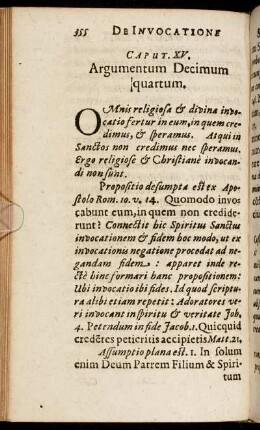 355 DE INVOCATIONE
CAPUT. XV.
Argumentum Decimum
quartum.
OMnis religiosa & divina invo-
catio fertur in eum, in quem cre-
dimus, & speramus. Atqui in
Sanctos non credimus nec speramus.
Ergo religiosè & Christianè invocan-
di non sunt.
Propositio desumpta est ex Apo-
stolo Rom. 10. v. 14. Quomodo invo-
cabunt eum, in quem non credide-
runt? Connectit hic Spiritus Sanctus
invocationem & fidem hoc modo, ut ex
invocationis negatione procedat ad ne-
gandam fidem: apparet inde re-
ctè hinc formari hanc propositionem:
Ubi invocatio ibi fides. Id quod scriptu-
ra alibi etiam repetit: Adoratores ve-
ri invocant in spiritu & veritate Joh.
4. Petendum in fide Jacob. 1. Quicquid
credētes petieritis accipietis Matt. 21.
Assumptio plana est. 1. In solum
enim Deum Patrem Filium & Spiri-
tum